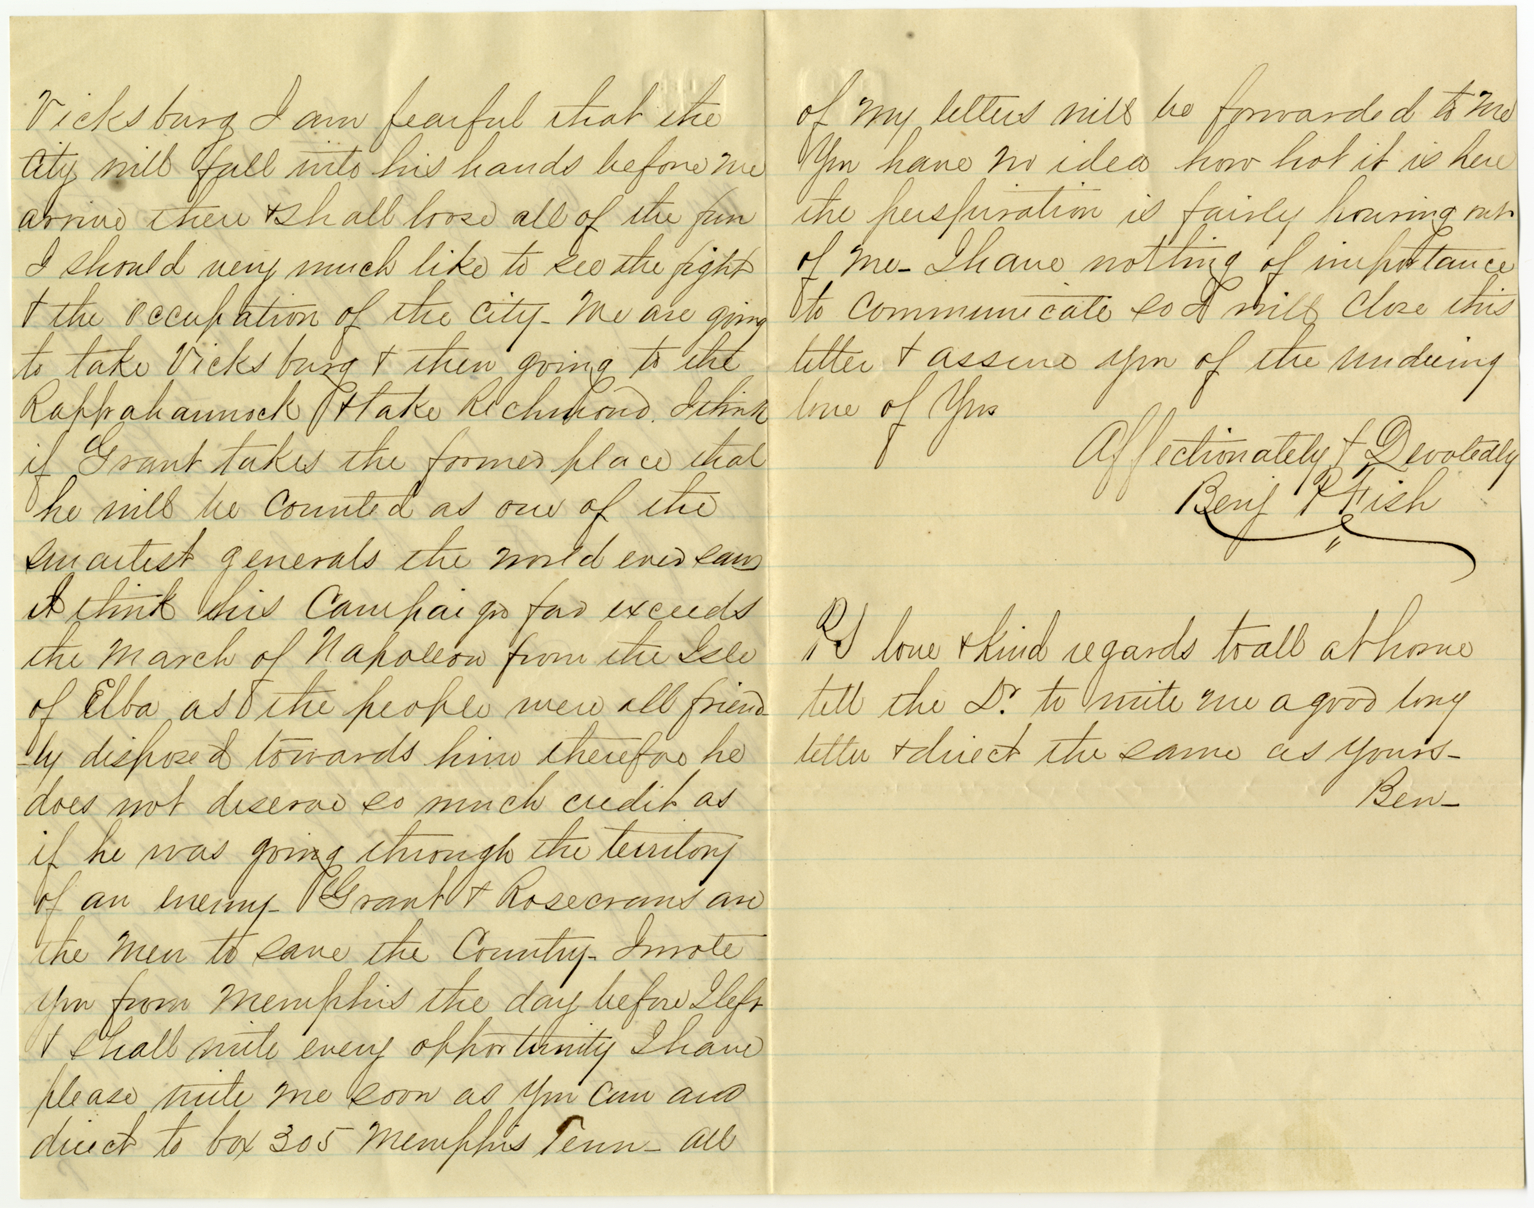 Vicksburg I am fearful that the
City will fall into his hands before we
arrive there & shall loose all of the fun
I should very much like to see the fight
& the occupation of the city_ We are going
to take Vicksburg & then going to the
Rappahannock & take Richmond. I think
if Grant takes the former place that
he will be counted as one of the
smartest generals the world ever saw
I think this Campaign far exceeds
the March of Napoleon from the Isle
of Elba as the people were all friend
-ly disposed towards him therefore he
does not deserve so much credit as
if he was going through the territory
of an enemy_ Grant & Rosecrans are
the men to save the Country_ I wrote
you from Memphis the day before I left
& shall write every opportunity I have
please write me soon as you can and
direct to box 305 Memphis Tenn_ all
of my letters will be forwarded to me
You have no idea how hot it is here
the perspiration is fairly pouring out
of me_ I have nothing of importance
to communicate so I will close this
letter & assure you of the undieing
love of Yrs
Affectionately & Devotedly
Benj P Fish
PS love & kind regards to all at home
tell the Dr. to write me a good long
letter & direct the same as yours_
Ben_